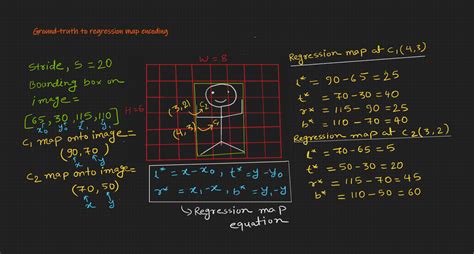 Ground-truth to regression map encoding
Stride, S = 20
Bounding box on
image =
[65, 30, 115, 110]
x₀ y₀ x₁ y₁
C₁ map onto image =
(90, 70)
x y
C₂ map onto image =
(70, 50)
x y
W = 8
H = 6
(3,2) C₂
(4,3) C₁
l* = x - x₀, t* = y - y₀
r* = x₁ - x, b* = y₁ - y
Regression map
equation
Regression map at C₁(4,3)
l* = 90 - 65 = 25
t* = 70 - 30 = 40
r* = 115 - 90 = 25
b* = 110 - 70 = 40
Regression map at C₂(3,2)
l* = 70 - 65 = 5
t* = 50 - 30 = 20
r* = 115 - 70 = 45
b* = 110 - 50 = 60